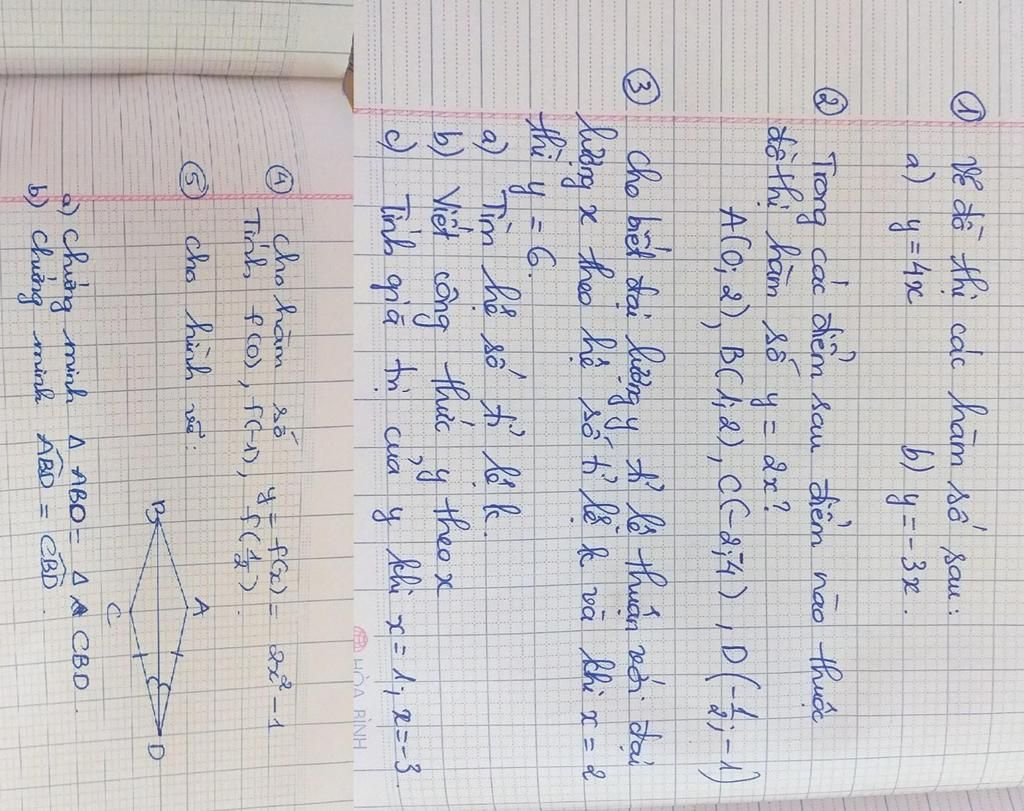 ① Vẽ đồ thị các hàm số sau:
a) y = 4x b) y = -3x.
② Trong các điểm sau điểm nào thuộc
đồ thị hàm số y = 2x?
A(0; 2), B(1; 2), C(-2; -4), D(-1/2; -1)
③ Cho biết đại lượng y tỉ lệ thuận với đại
lượng x theo hệ số tỉ lệ k và khi x = 2
thì y = 6.
a) Tìm hệ số tỉ lệ k.
b) Viết công thức y theo x
c) Tính giá trị của y khi x = 1; x = -3
HÒA BÌNH
④ Cho hàm số y = f(x) = 2x² - 1
Tính f(0), f(-1), f(1/2).
⑤ Cho hình vẽ:
B
A
C
D
a) Chứng minh Δ ABD = Δ CBD.
b) Chứng minh ABD = CBD.